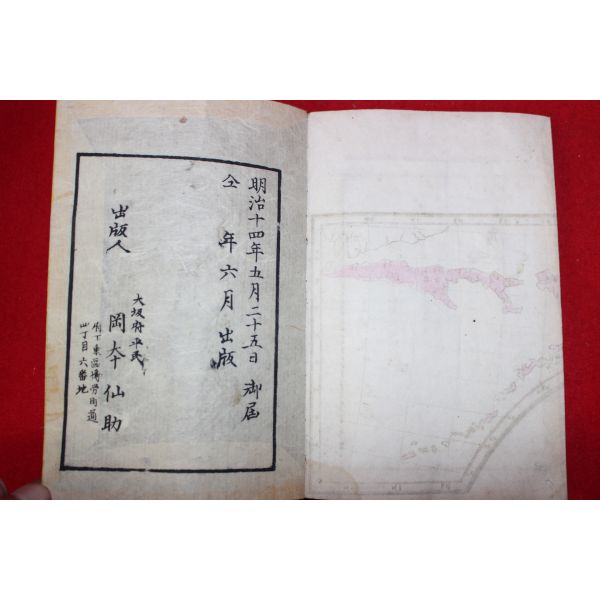 明治十四年五月二十五日 御届
仝 年六月出版
出版人
大坂府平民
岡本仙助
府下東區博労町通
四丁目六番地